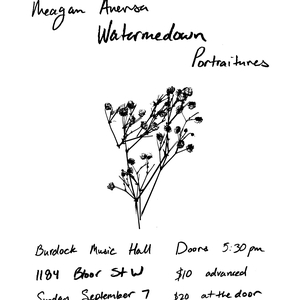 Meagan Aversa
Watermedown
Portraitures
Burdock Music Hall Doors 5:30 pm
1184 Bloor St W $10 advanced
Sunday September 7 $20 at the door